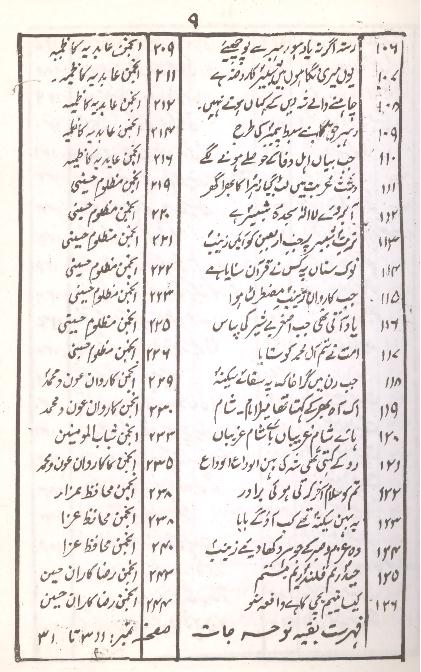 ۹
۱۰۶ رستہ اگر نہ یاد ہو رہبر سے پوچھیئے ۲۰۹ انجمن عابدیہ کاظمیہ
۱۰۷ یوں میری نگاہوں میں سکینہؑ کا روضہ ہے ۲۱۱ انجمن عابدیہ کاظمیہ
۱۰۸ چاہنے والے نہ دیں کے کہاں ہوتے نہیں ۲۱۲ انجمن عابدیہ کاظمیہ
۱۰۹ رہبر حق کا ہے سبط پیمبرؐ کی طرح ۲۱۴ انجمن عابدیہ کاظمیہ
۱۱۰ جب بیاں اہل وفا کے حوصلے ہونے لگے ۲۱۶ انجمن عابدیہ کاظمیہ
۱۱۱ دشت غربت میں لٹ گیا زہراؑ کا بھرا گھر ۲۱۹ انجمن مظلوم حسینی
۱۱۲ آبروئے لا الہ سجدۂ شبیرؑ ہے ۲۲۰ انجمن مظلوم حسینی
۱۱۳ تربت شبیرؑ پر جب اربعین کو آئیں زینبؑ ۲۲۱ انجمن مظلوم حسینی
۱۱۴ نوک سناں پہ کس نے قرآن سنایا ہے ۲۲۲ انجمن مظلوم حسینی
۱۱۵ جب کاروان زینبؑ مضطر لٹ ہوا ۲۲۳ انجمن مظلوم حسینی
۱۱۶ یاد آتی تھی جب اصغرؑ بے شیر کی پیاس ۲۲۵ انجمن مظلوم حسینی
۱۱۷ امت نے تیری آل محمدؐ کو ستایا ۲۲۶ انجمن مظلوم حسینی
۱۱۸ جب رن میں گرا خاک پہ سقائے سکینہؑ ۲۲۹ انجمن کاروان عون و محمدؑ
۱۱۹ اک آہ بھر کے کہتا تھا میرا امامؑ۔ شام ۲۳۰ انجمن کاروان عون و محمد
۱۲۰ ہائے شام غریباں ہائے شام غریباں ۲۳۳ انجمن شباب المومنین
۱۲۱ رو کے کہتی تھی شہ کی بہن الوداع الوداع ۲۳۵ انجمن کاروان عون و محمد
۱۲۲ تم کو سلام آخر کرتی ہوئی برادر ۲۳۸ انجمن محافظ عزا
۱۲۳ یہ بہن سکینہؑ تھے کب آؤ گے بابا ۲۳۸ انجمن محافظ عزا
۱۲۴ وہ عزم و صبر کے جوہر دکھا دیے زینبؑ ۲۴۰ انجمن محافظ عزا
۱۲۵ حیدرؑیم قلندرم مستم ۲۴۳ انجمن رضا کاران حسین
۱۲۶ کیسا یتیم بچی کا ہے واقعہ سنو ۲۴۴ انجمن رضا کاران حسین
فہرست بقیہ نوحہ جات صفحہ نمبر: ۳۱۱ تا ۳۱